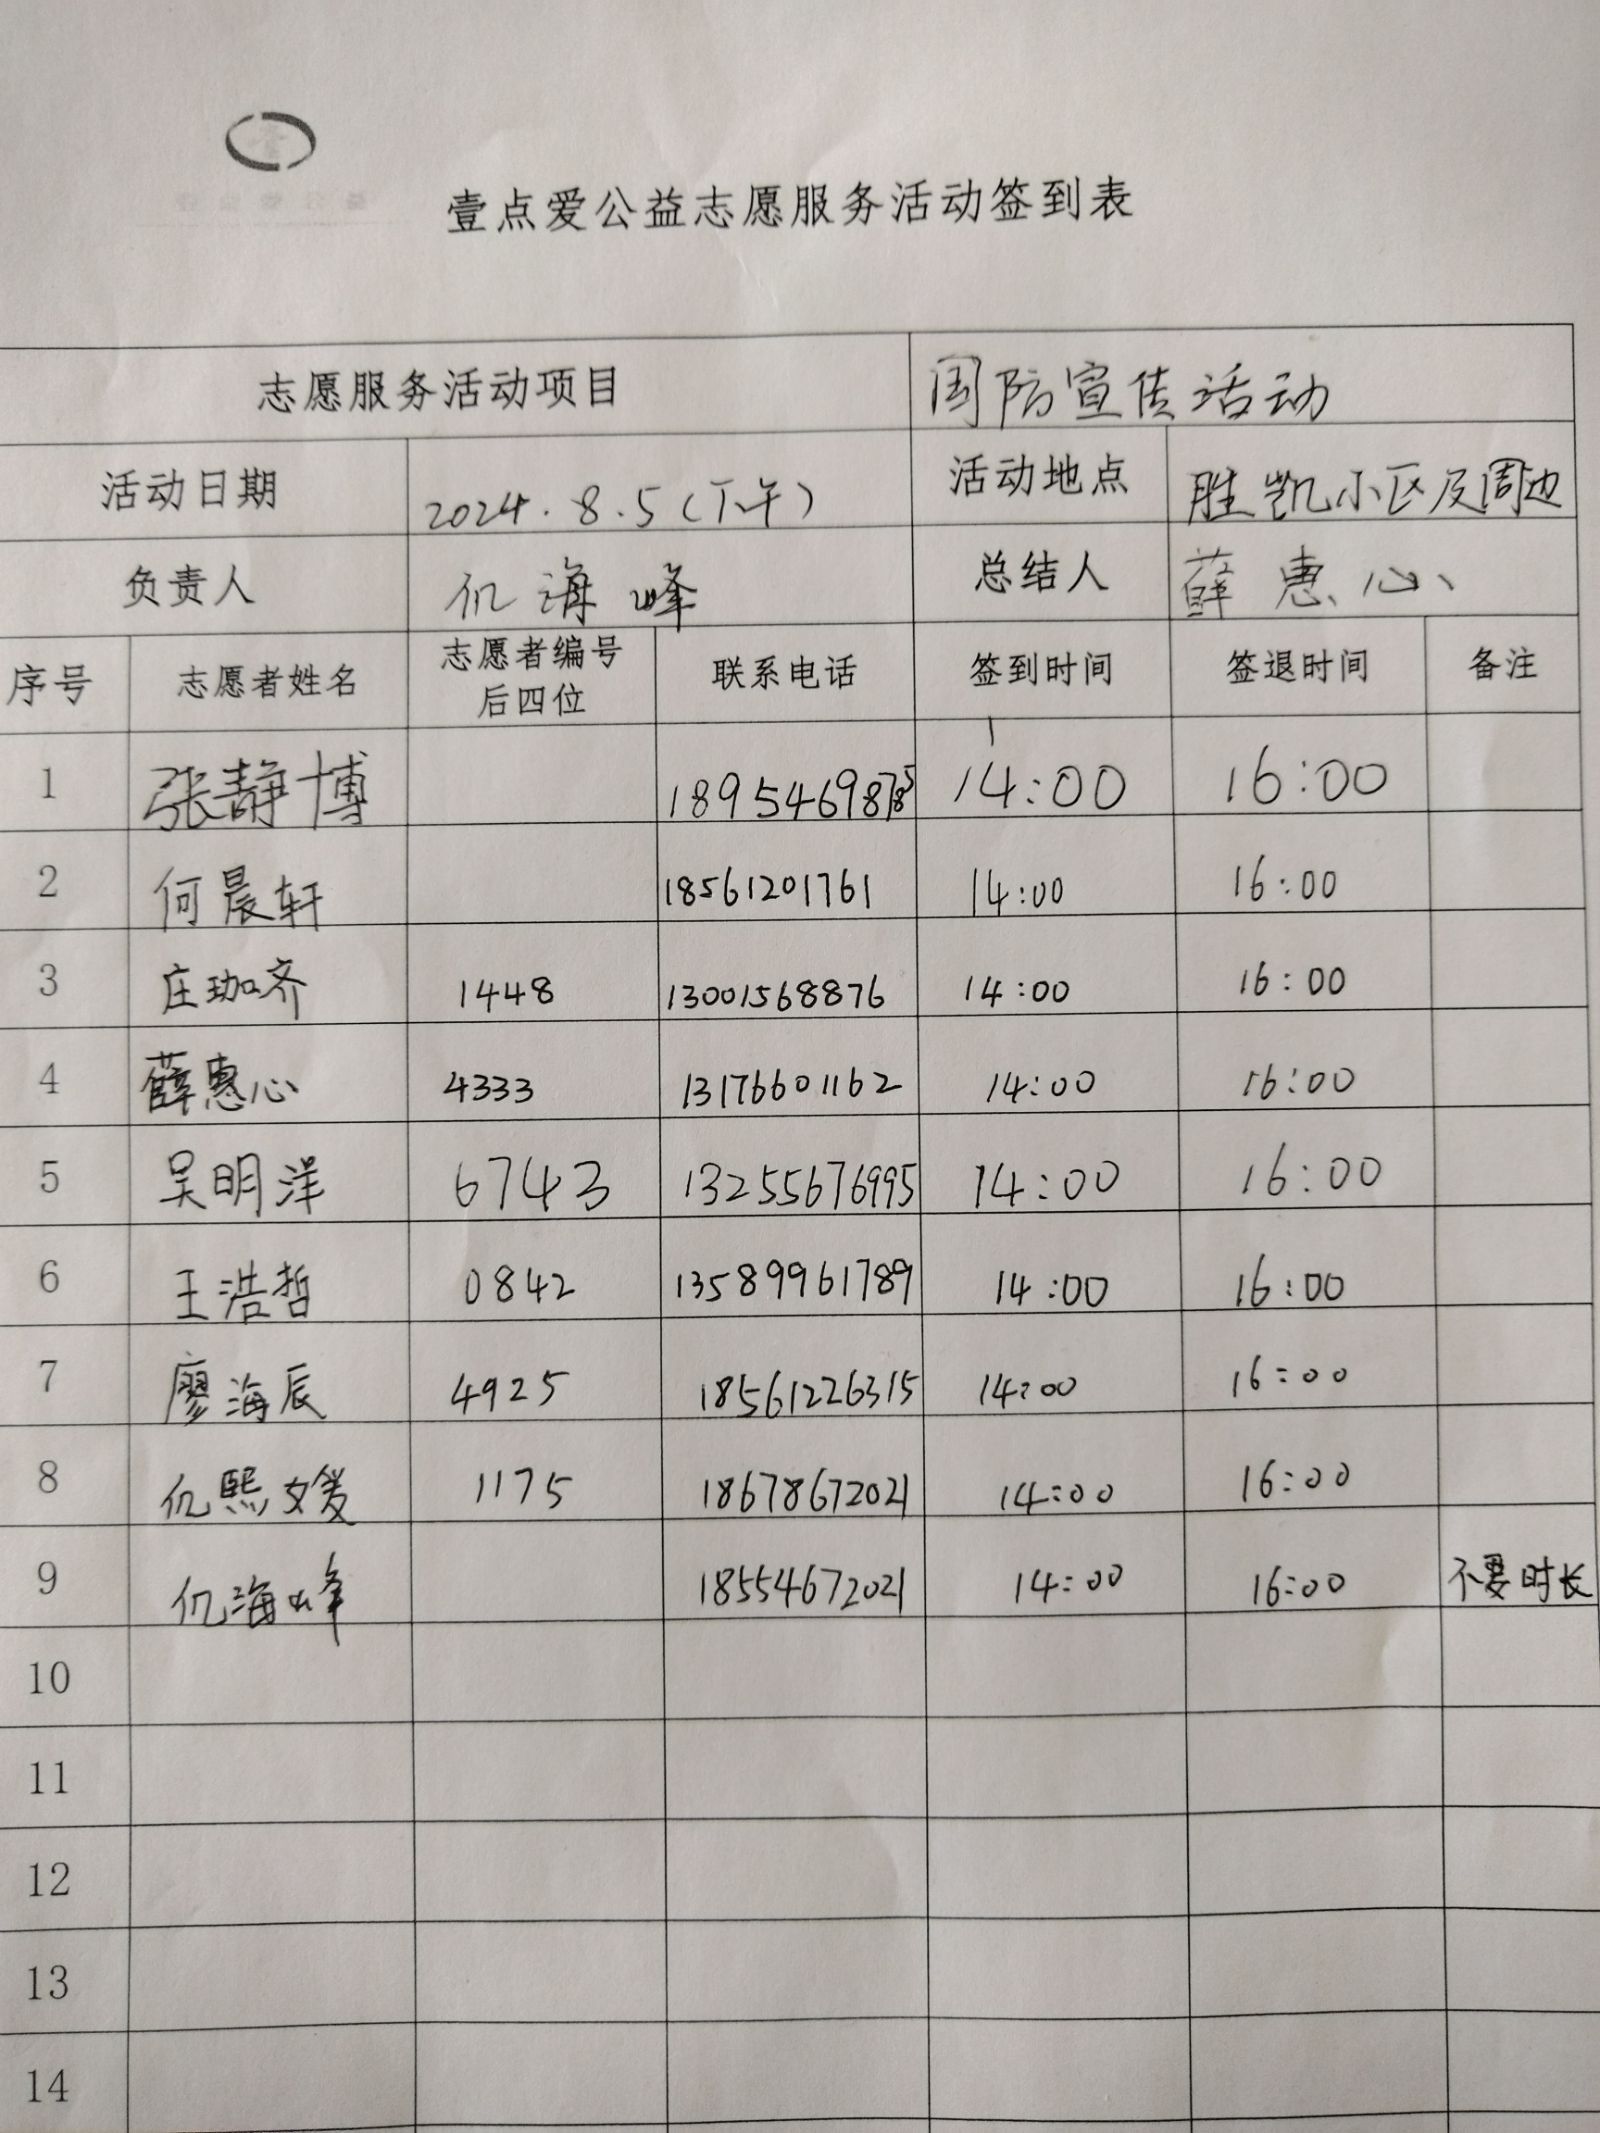 壹点爱公益志愿服务活动签到表
志愿服务活动项目 国防宣传活动
活动日期 2024.8.5(下午) 活动地点 胜凯小区及周边
负责人 仉海峰 总结人 薛惠心
序号 志愿者姓名 志愿者编号后四位 联系电话 签到时间 签退时间 备注
1 张静博 14:00 16:00
2 何晨轩 18561201761 14:00 16:00
3 庄珈齐 1448 13001568876 14:00 16:00
4 薛惠心 4333 13176601162 14:00 16:00
5 吴明洋 6743 13255676995 14:00 16:00
6 王浩哲 0842 13589961789 14:00 16:00
7 廖海辰 4925 18561226315 14:00 16:00
8 仉熙媛 1175 18678672021 14:00 16:00
9 仉海峰 18554672021 14:00 16:00 不要时长
10
11
12
13
14